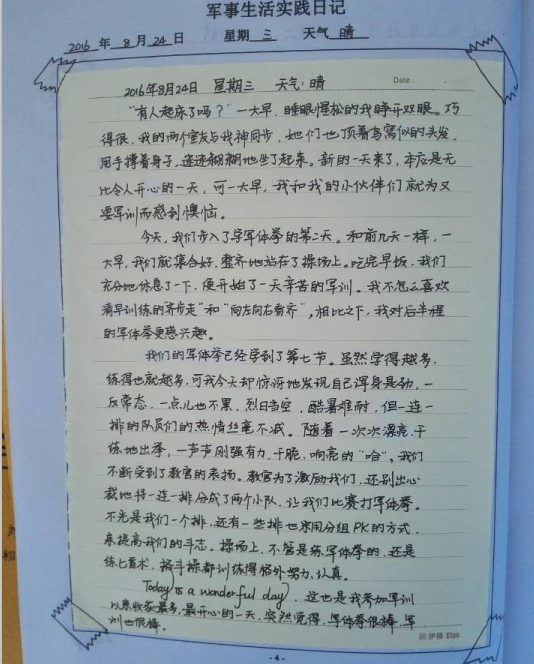 军事生活实践日记
2016 年 8 月 24 日 星期 三 天气 晴
2016年8月24日 星期三 天气:晴 Date
“有人起床了吗？”一大早，睡眼惺松的我睁开双眼。巧
得很，我的两个室友与我神同步，她们也顶着鸟窝似的头发，
用手撑着身子，迷迷糊糊地坐了起来。新的一天来了，本应是无
比令人开心的一天，可一大早，我和我的小伙伴们就为又
要军训而感到懊恼。
今天，我们步入了学军体拳的第二天。和前几天一样，一
大早，我们就集合好，整齐地站在了操场上。吃完早饭，我们
充分地休息了一下，便开始了一天辛苦的军训。我不怎么喜欢
清早训练的“齐步走”和“向左向右看齐”，相比之下，我对后半程
的军体拳更感兴趣。
我们的军体拳已经学到了第七节。虽然学得越多，
练得也就越多，可我今天却惊讶地发现自己浑身是劲，一
反常态，一点儿也不累，烈日当空，酷暑难耐，但一连一
排的队员们的热情丝毫不减。随着一次次漂亮、干
练地出拳，一声声刚强有力、干脆、响亮的“哈”，我们
不断受到了教官的表扬。教官为了激励我们，还别出心
裁地将一连一排分成了两个小队，让我们比赛打军体拳。
不光是我们一个排，还有一些排也采用分组PK的方式，
来提高我们的斗志。操场上，不管是练军体拳的，还是
练匕首术、格斗操都训练得格外努力、认真。
Today is a wonderful day，这也是我参加军训
以来收获最多，最开心的一天，突然觉得，军体拳很棒，军
训也很棒。
伊顿 Eton
- 4 -